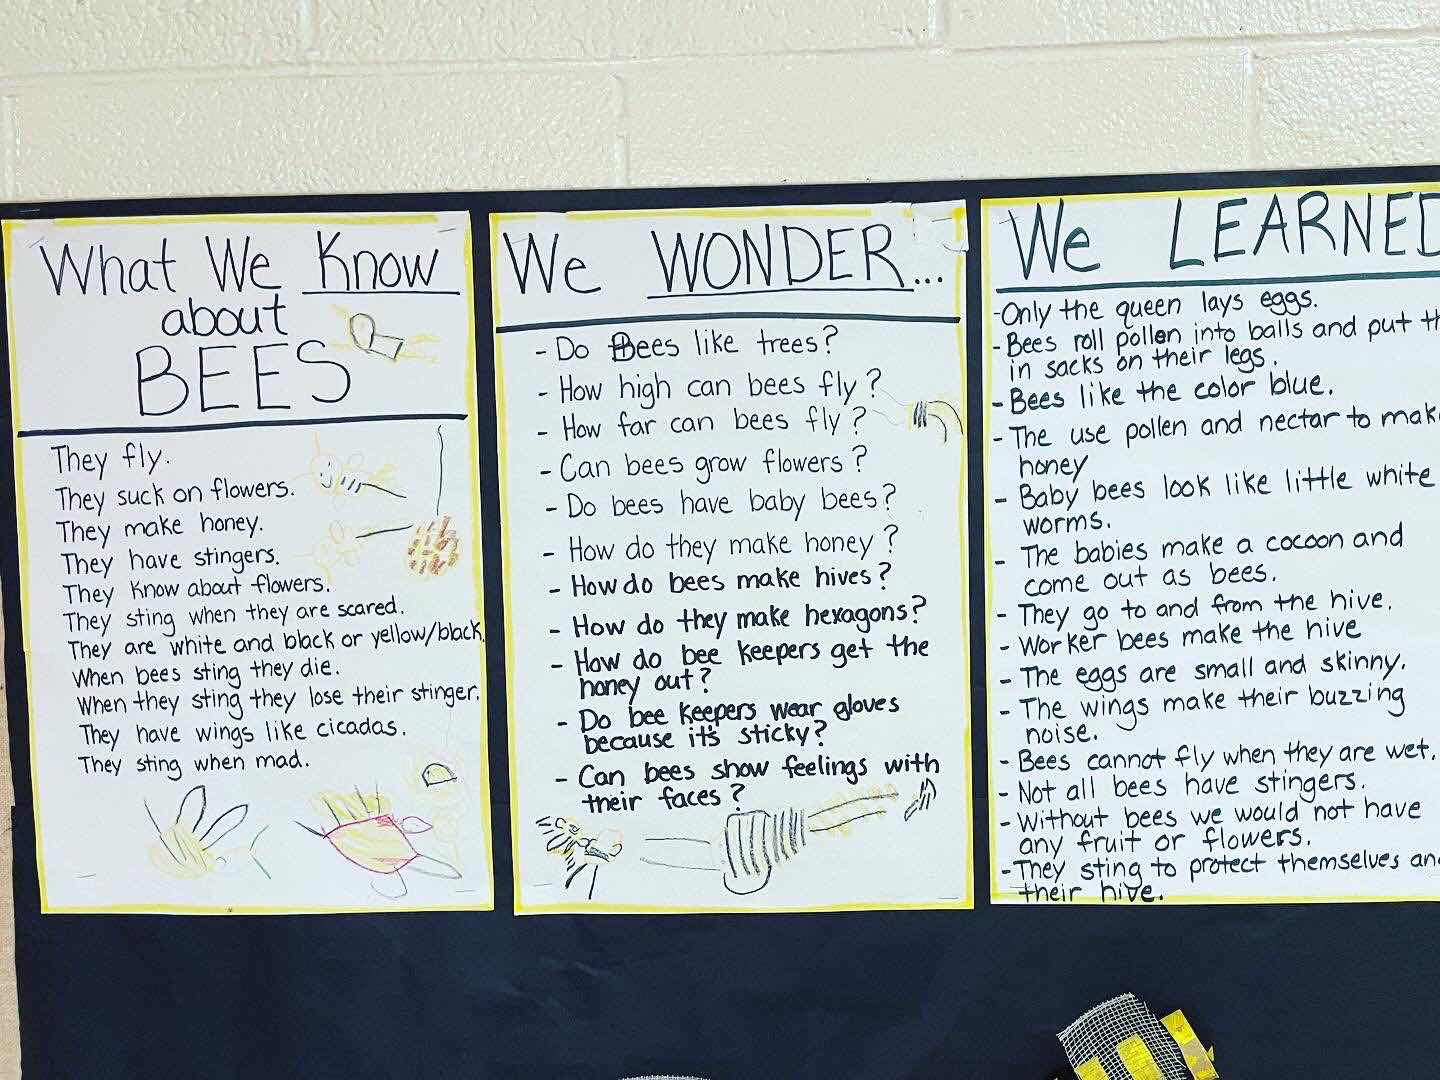 What We Know
about
BEES
They fly.
They suck on flowers.
They make honey.
They have stingers.
They know about flowers.
They sting when they are scared.
They are white and black or yellow/black.
When bees sting they die.
When they sting they lose their stinger.
They have wings like cicadas.
They sting when mad.
We WONDER...
- Do Bees like trees?
- How high can bees fly?
- How far can bees fly?
- Can bees grow flowers?
- Do bees have baby bees?
- How do they make honey?
- How do bees make hives?
- How do they make hexagons?
- How do bee keepers get the
honey out?
- Do bee keepers wear gloves
because it's sticky?
- Can bees show feelings with
their faces?
We LEARNED
- Only the queen lays eggs.
- Bees roll pollen into balls and put th
in sacks on their legs.
- Bees like the color blue.
- The use pollen and nectar to make
honey
- Baby bees look like little white
worms.
- The babies make a cocoon and
come out as bees.
- They go to and from the hive.
- Worker bees make the hive
- The eggs are small and skinny.
- The wings make their buzzing
noise.
- Bees cannot fly when they are wet.
- Not all bees have stingers.
- Without bees we would not have
any fruit or flowers.
- They sting to protect themselves an
their hive.